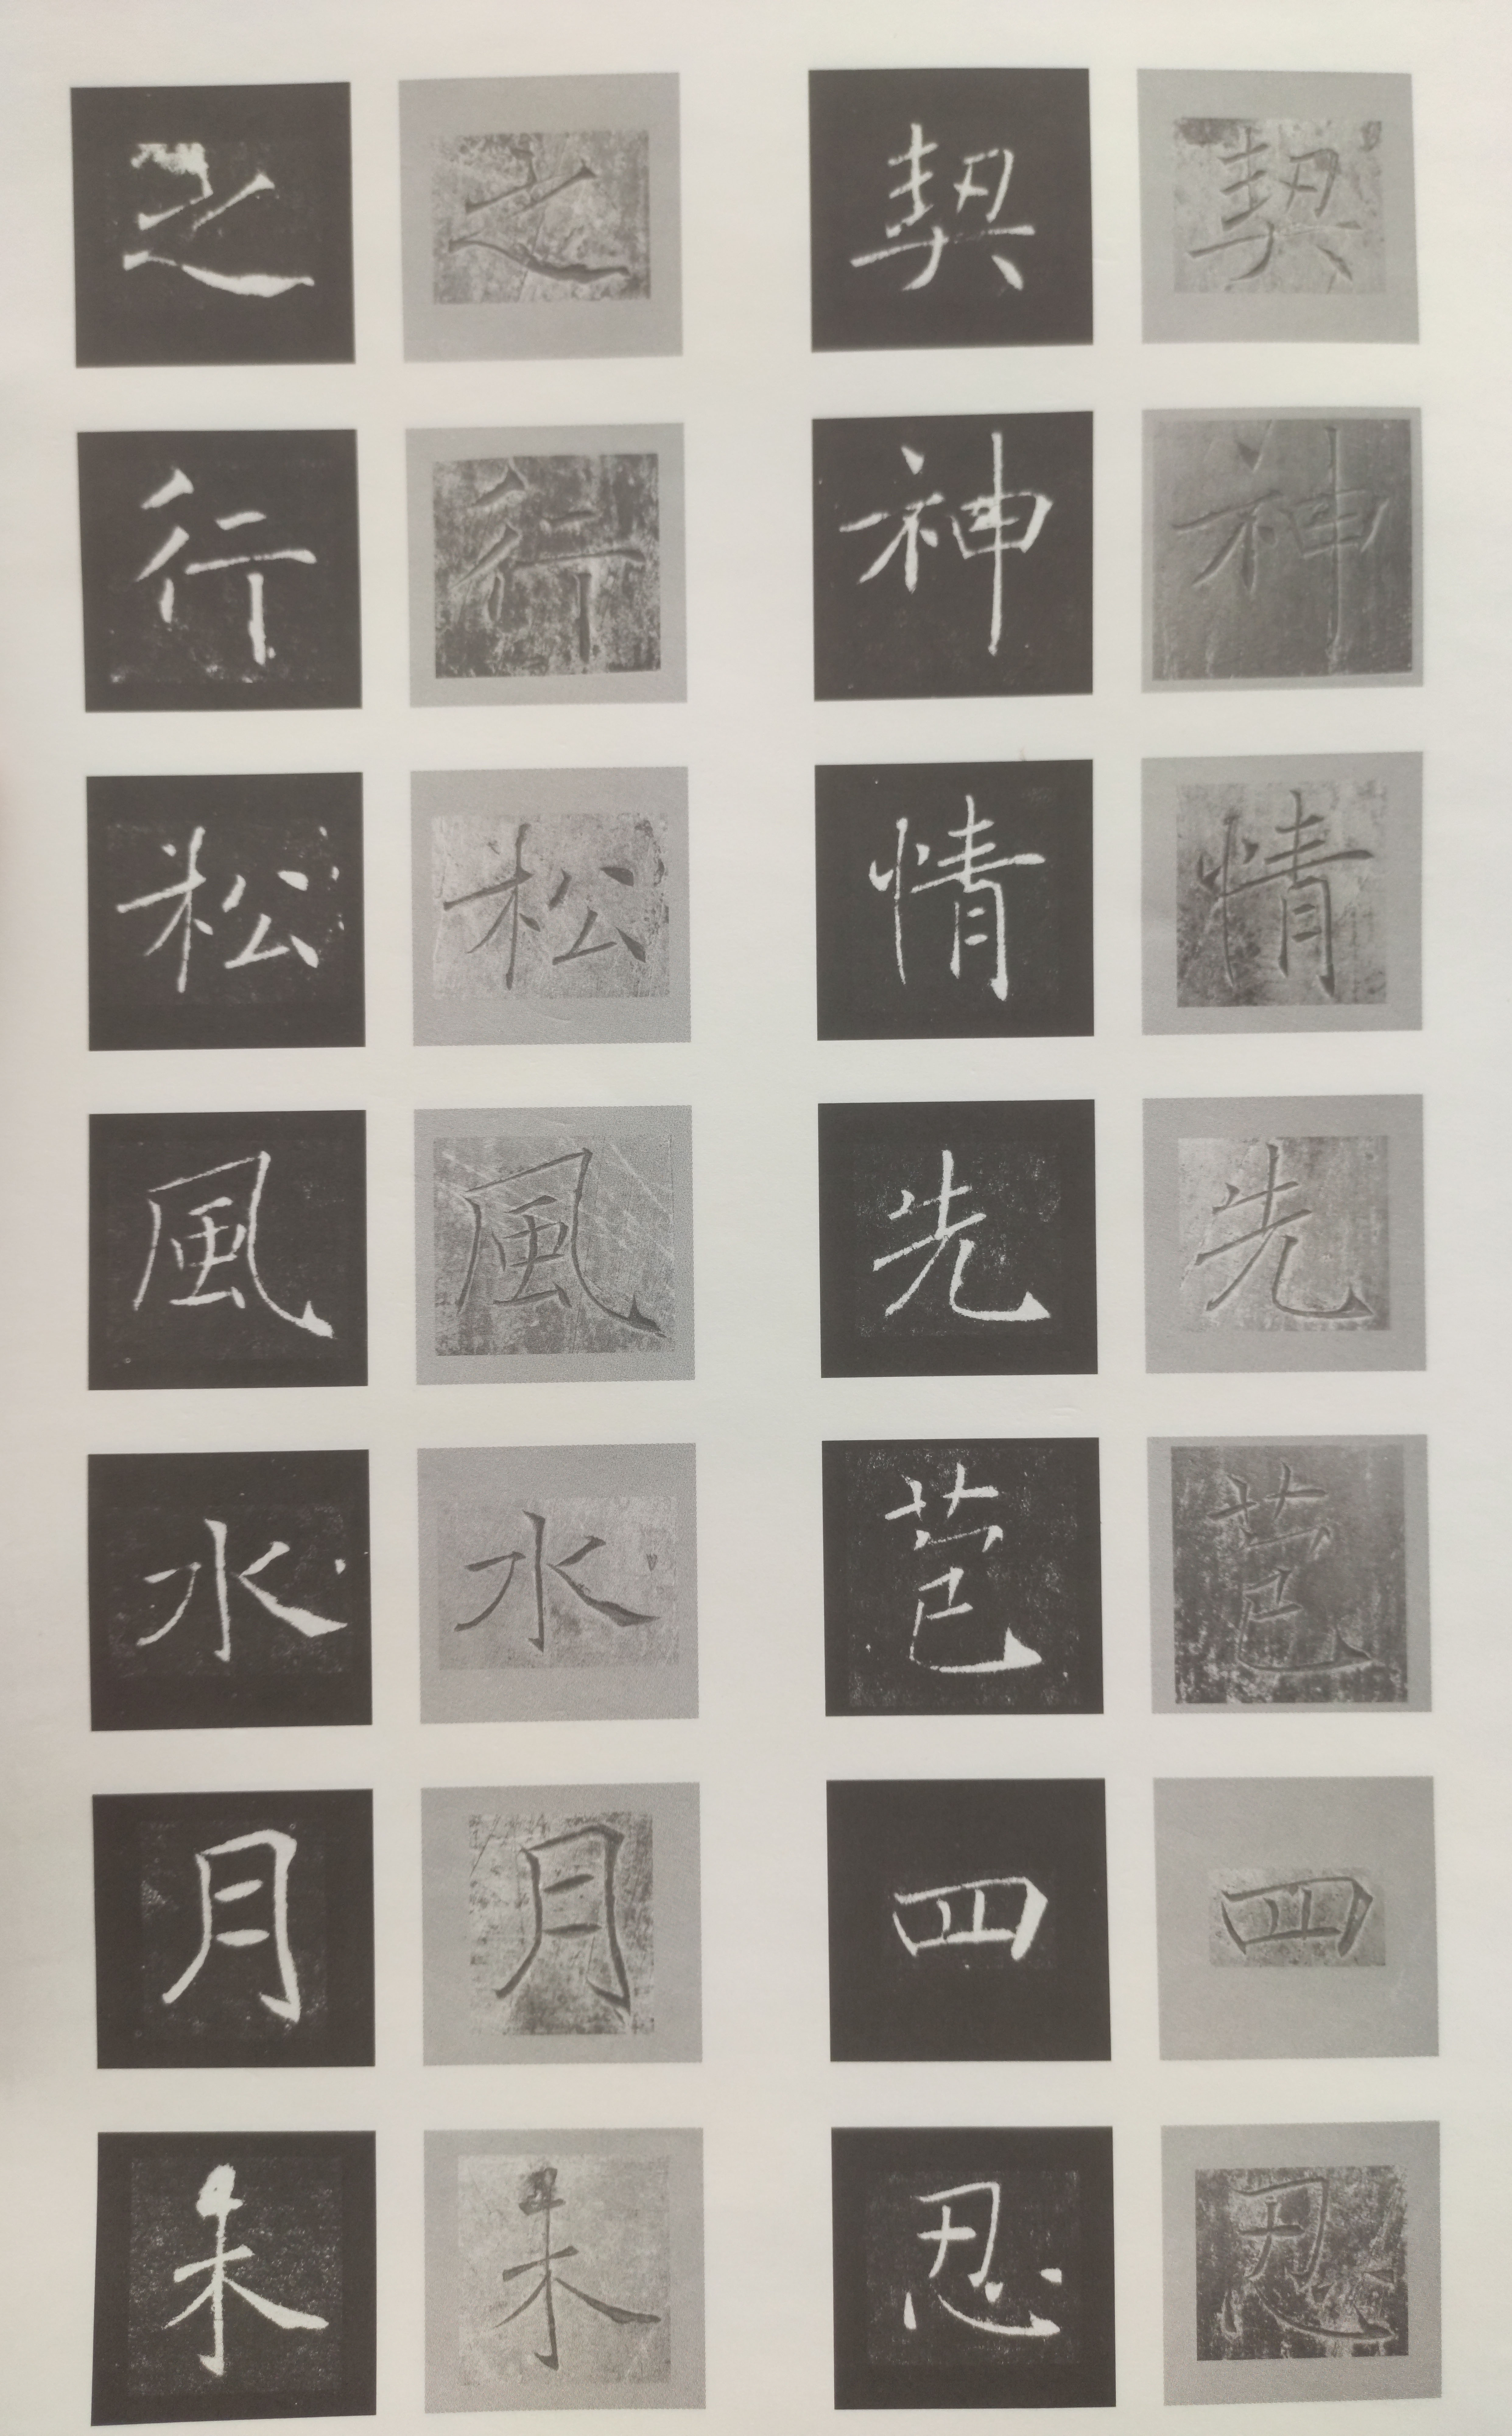 契神情先苞四忍
契神情先苞四忍
之行松風水月未
之行松風水月未